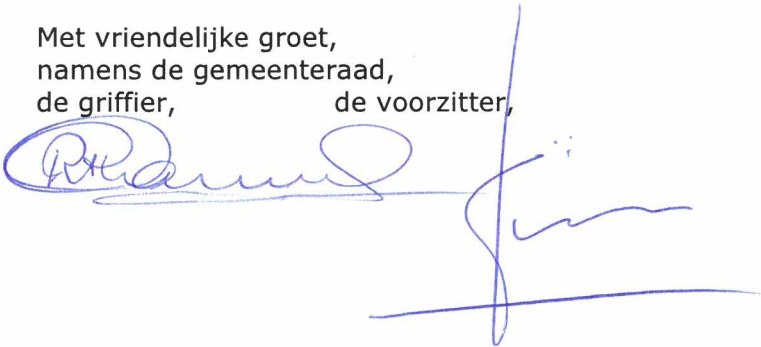 Met vriendelijke groet,
namens de gemeenteraad,
de griffier, de voorzitter,